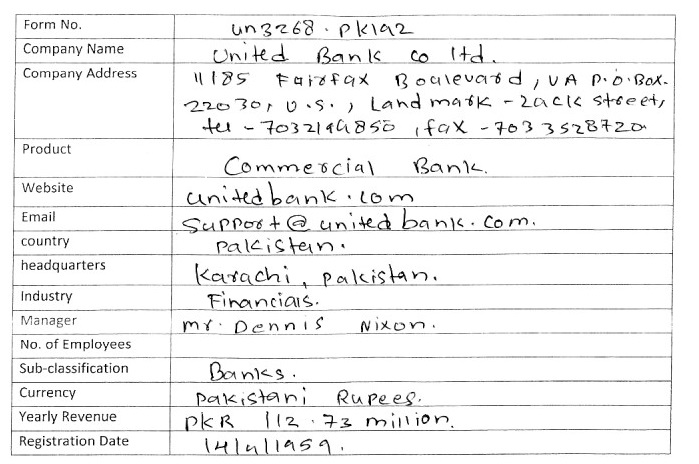 Form No. un3268.pk192
Company Name United Bank co ltd.
Company Address 11185 Fairfax Boulevard, VA P.O.Box.
22030, U.S., Landmark - zack street,
tel - 7032194850, fax - 7033528720
Product Commercial Bank.
Website unitedbank.com
Email support@unitedbank.com.
country pakistan.
headquarters Karachi, pakistan.
Industry Financials.
Manager mr. Dennis Nixon.
No. of Employees
Sub-classification Banks.
Currency pakistani Rupees.
Yearly Revenue PKR 112.73 million.
Registration Date 14/4/1959.